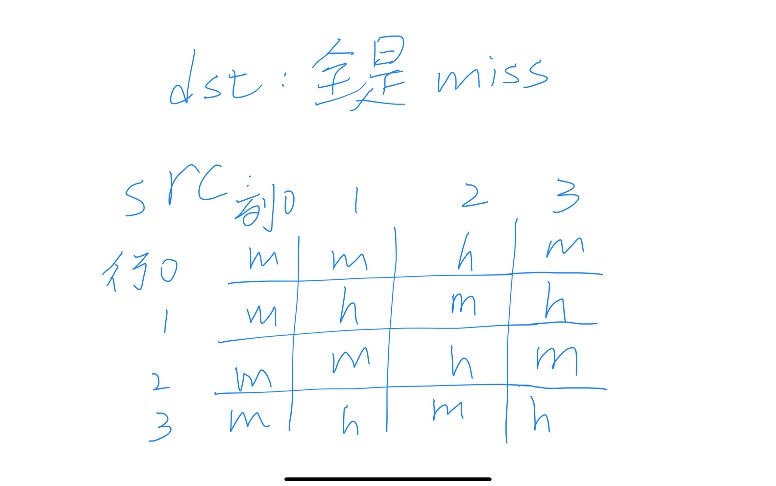 dst: 全是 miss
src 列0 1 2 3
行0 m m h m
1 m h m h
2 m m h m
3 m h m h